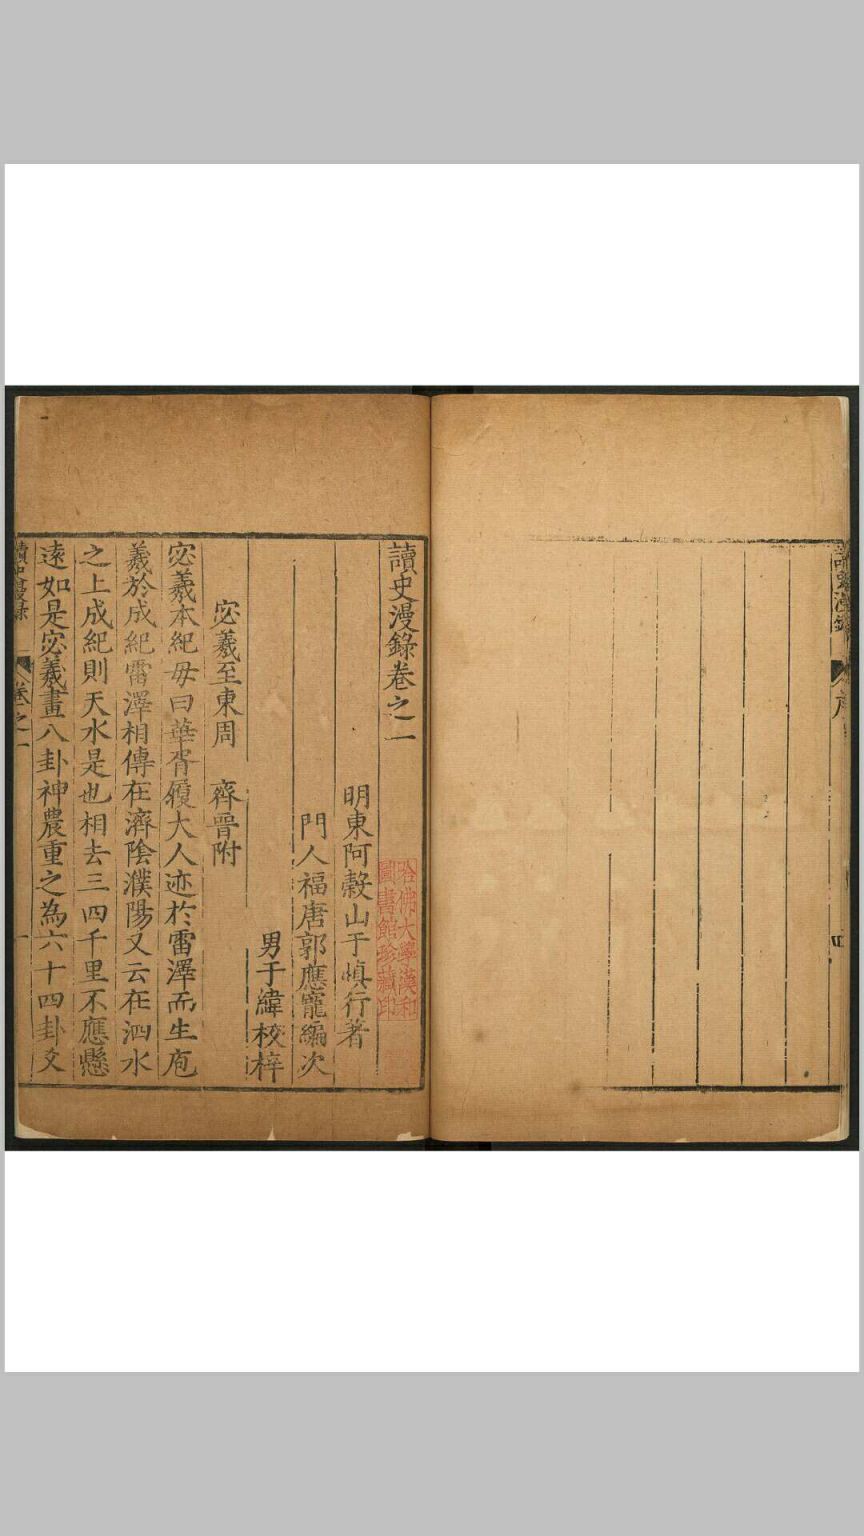 讀史漫錄卷之一
明東阿穀山于慎行著
門人福唐郭應寵編次
男于緯校梓
宓羲至東周　齊晉附
宓羲本紀毋曰華胥履大人迹於雷澤而生庖
羲於成紀雷澤相傳在濟陰濮陽又云在泗水
之上成紀則天水是也相去三四千里不應懸
遠如是宓羲畫八卦神農重之為六十四卦爻
讀史漫錄
卷之一
一
哈佛大學漢和
圖書館珍藏印